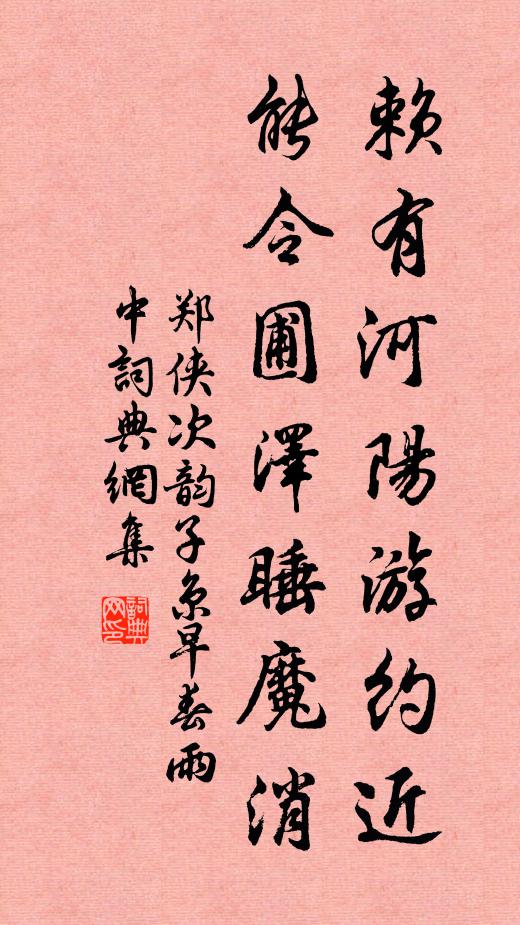 赖有河陽游约近
能令圃澤睡魔消
郑侠次韵子京早春雨
中詞典網集
詞典网印